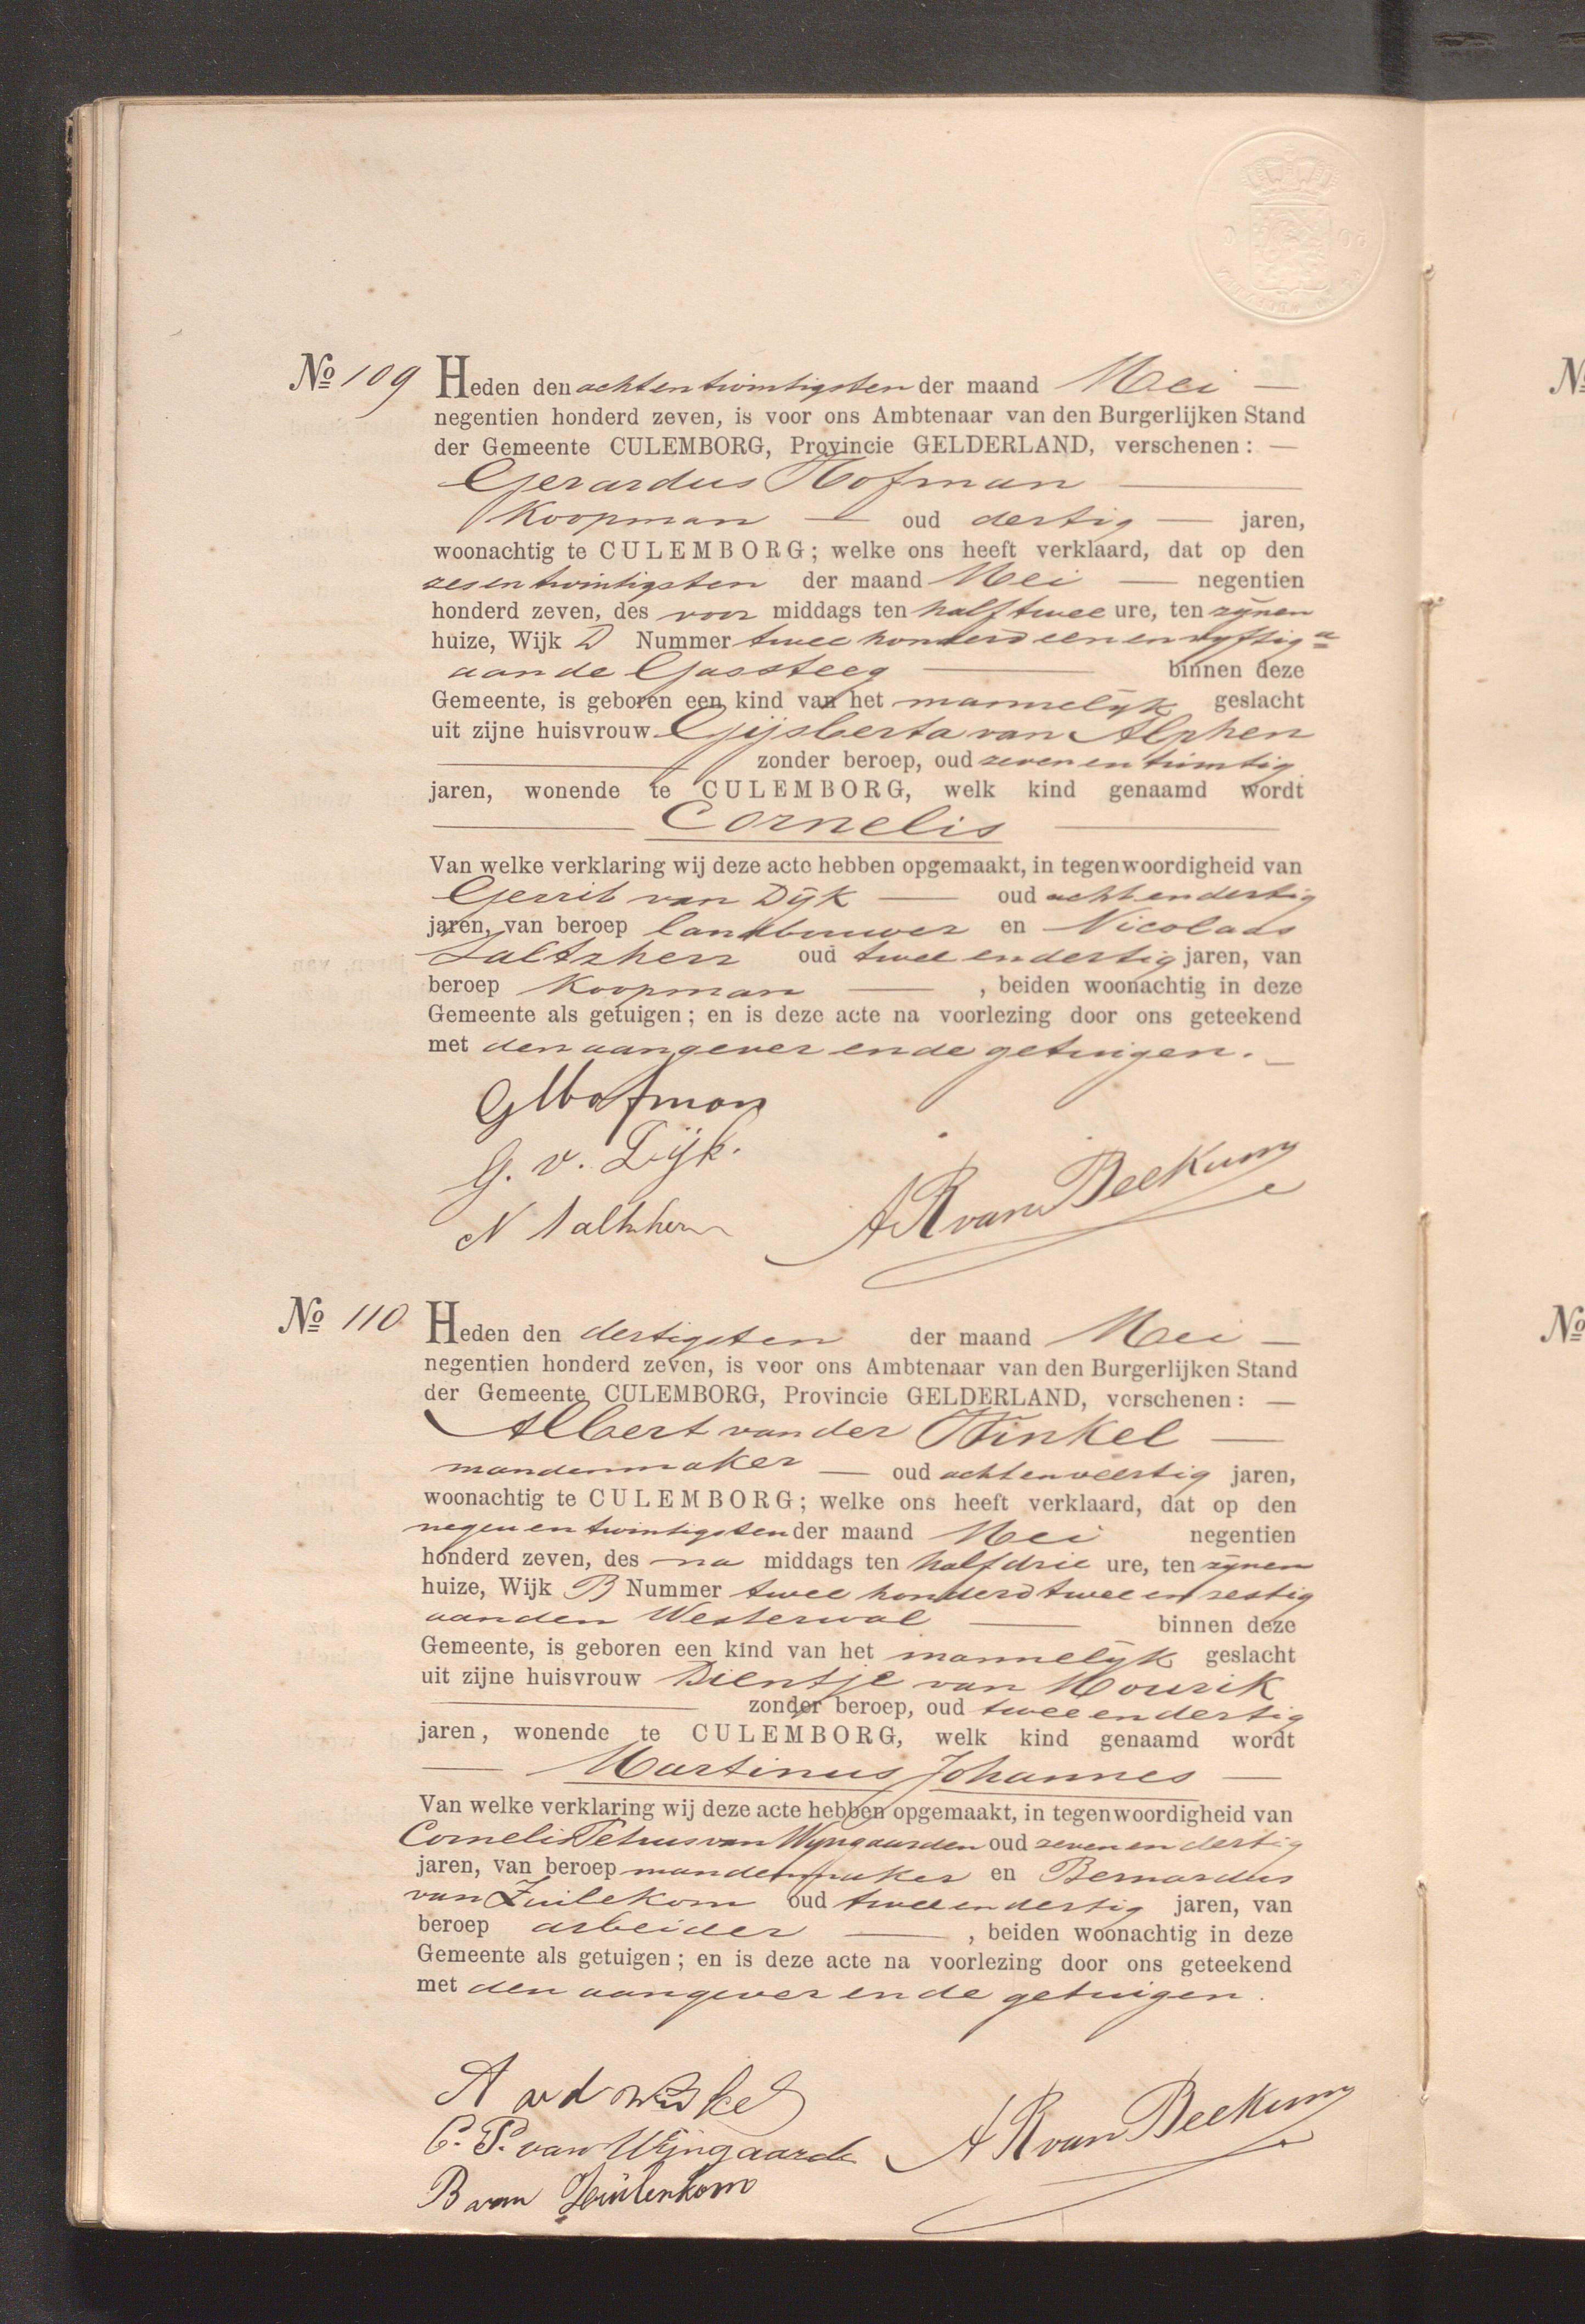 No 109 Heden den achtentwintigsten der maand Mei —
negentien honderd zeven, is voor ons Ambtenaar van den Burgerlijken Stand
der Gemeente CULEMBORG, Provincie GELDERLAND, verschenen: —
Gerardus Hofman
Koopman — oud dertig — jaren,
woonachtig te CULEMBORG; welke ons heeft verklaard, dat op den
zesentwintigsten der maand Mei — negentien
honderd zeven, des voor middags ten half twee ure, ten zijnen
huize, Wijk D Nummer twee honderd eenenvijftig a
aan de Gassteeg — binnen deze
Gemeente, is geboren een kind van het mannelijk geslacht
uit zijne huisvrouw Gijsberta van Alphen
— zonder beroep, oud zevenentwintig
jaren, wonende te CULEMBORG, welk kind genaamd wordt
— Cornelis —
Van welke verklaring wij deze acte hebben opgemaakt, in tegenwoordigheid van
Gerrit van Dijk — oud achtendertig
jaren, van beroep landbouwer en Nicolaas
Saltzherr oud tweeendertig jaren, van
beroep Koopman — , beiden woonachtig in deze
Gemeente als getuigen; en is deze acte na voorlezing door ons geteekend
met den aangever en de getuigen. —
G Hofman
G. v. Dijk.
N Saltzherr A R van Beekum
No 110 Heden den dertigsten der maand Mei —
negentien honderd zeven, is voor ons Ambtenaar van den Burgerlijken Stand
der Gemeente CULEMBORG, Provincie GELDERLAND, verschenen: —
Albert van der Winkel —
mandenmaker — oud achtenveertig jaren,
woonachtig te CULEMBORG; welke ons heeft verklaard, dat op den
negenentwintigsten der maand Mei negentien
honderd zeven, des na middags ten half drie ure, ten zijnen
huize, Wijk B Nummer twee honderd tweeenzestig
aan den Westerwal — binnen deze
Gemeente, is geboren een kind van het mannelijk geslacht
uit zijne huisvrouw Dientje van Mourik
— zonder beroep, oud tweeendertig
jaren, wonende te CULEMBORG, welk kind genaamd wordt
— Martinus Johannes —
Van welke verklaring wij deze acte hebben opgemaakt, in tegenwoordigheid van
Cornelis Petrus van Wijngaarden oud zevenendertig
jaren, van beroep mandenmaker en Bernardus
van Zuilekom oud tweeendertig jaren, van
beroep arbeider — , beiden woonachtig in deze
Gemeente als getuigen; en is deze acte na voorlezing door ons geteekend
met den aangever en de getuigen.
A v d Winkel
C. P. van Wijngaarde A R van Beekum
B van Zuilenkom